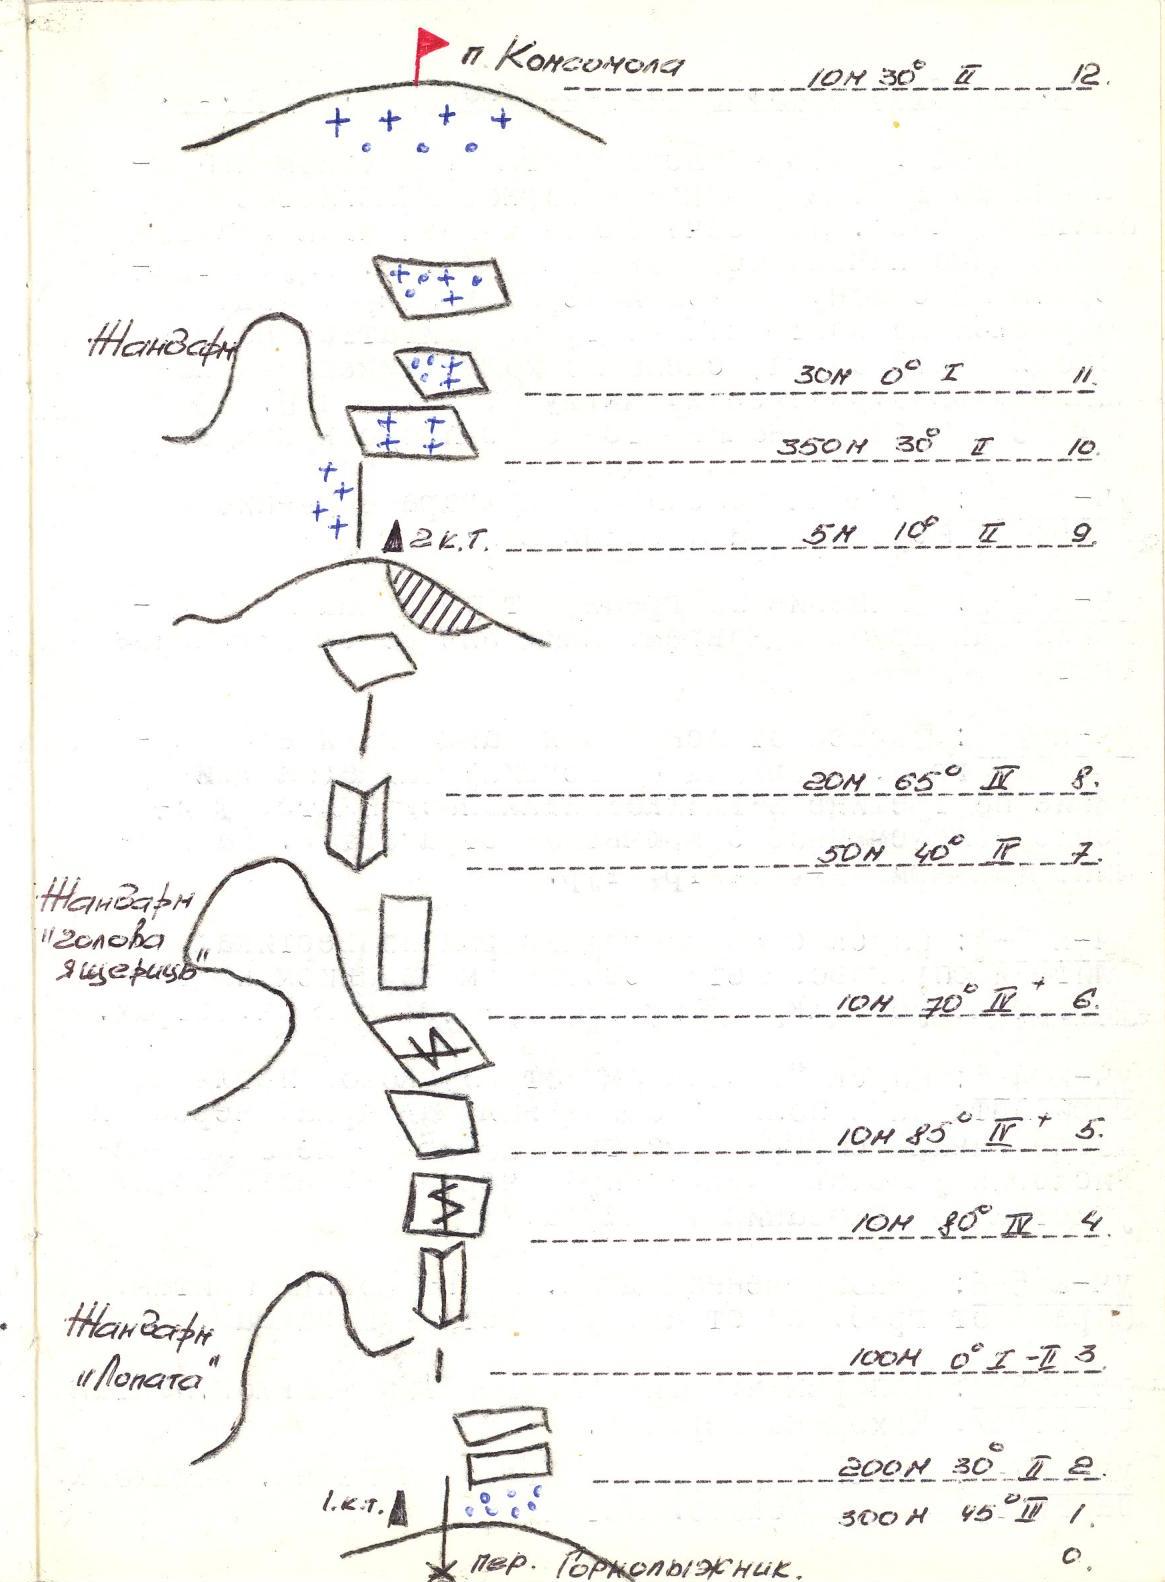 п. Комсомола
10м 30° II 12.
Жандарм
30м 0° I 11.
350м 30° II 10.
2 к.т. 5м 10° II 9.
20м 65° IV 8.
50м 40° II 7.
Жандарм
"голова
ящерицы"
10м 70° IV+ 6.
10м 85° IV+ 5.
10м 80° IV 4
Жандарм
"Лопата"
100м 0° I-II 3.
200м 30° II 2.
1.к.т.
300м 45° III 1.
0.
пер. Горнолыжник.